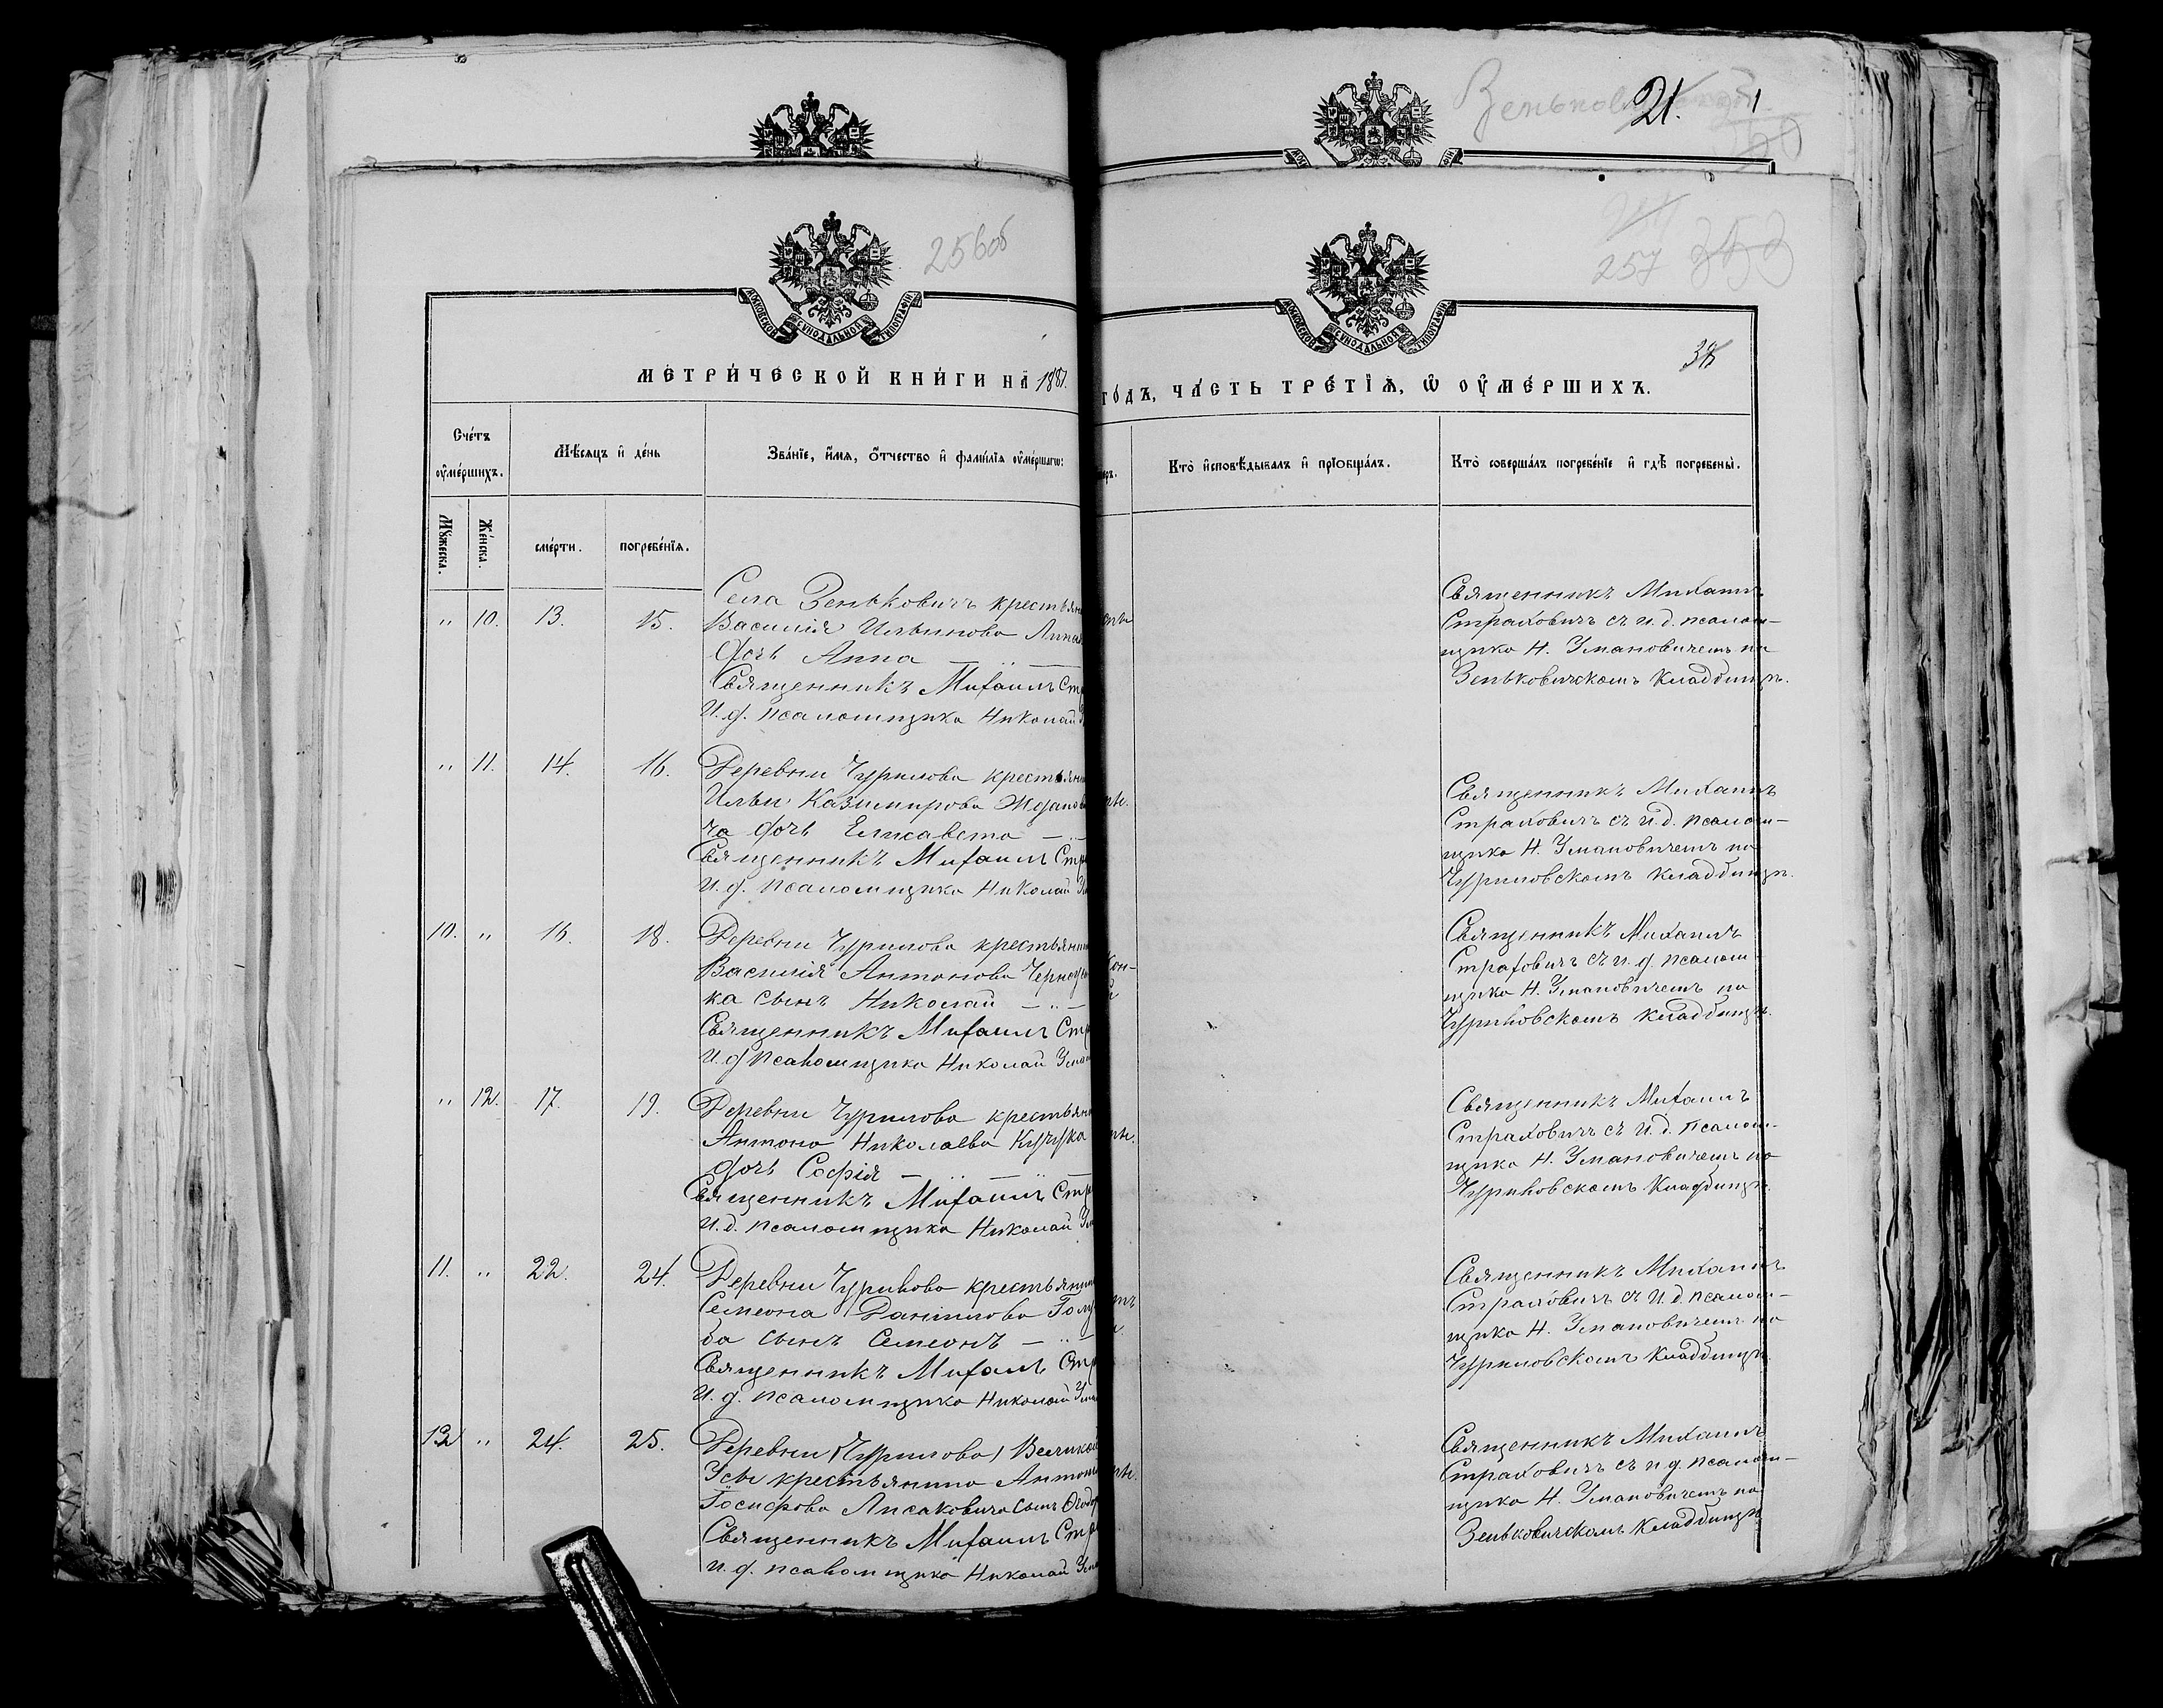 21.
256об
257
МОСКОВСКОЙ СѴНОДАЛЬНОЙ ТИПОГРАФІИ
МОСКОВСКОЙ СѴНОДАЛЬНОЙ ТИПОГРАФІИ
МЕТРИ́ЧЕСКОЙ КНИ́ГИ НА 1887.
ГО́ДЪ, ЧА́СТЬ ТРЕ́ТІѦ, Ѡ ОУ҆МЕ́РШИХЪ.
Сче́тъ оу҆ме́ршихъ.
Мѣ́сяцъ и҆ де́нь
Зва́ніе, и҆́мя, ѻ҆́тчество и҆ фами́лія оу҆ме́ршагѡ:
Кто̀ и҆сповѣ́дывалъ и҆ пріобща́лъ.
Кто̀ соверша́лъ погребе́ніе и҆ гдѣ̀ погребены̀.
Мꙋ́жеска.
Же́нска.
сме́рти.
погребе́нія.
" 10. 13. 15. Села Зеньковичъ крестьян
Василія Ильинова
дочь Анна
Священникъ Михаилъ Ст
И. д. псаломщика Николай
Священникъ Михаилъ
Страховичъ съ и. д. псалом-
щика Н. Умановичемъ на
Зеньковичскомъ кладбищѣ.
" 11. 14. 16. Деревни Чурилова крестьян
Ильи Казимирова Жданов
ча дочь Елисавета
Священникъ Михаилъ Стр
И. д. псаломщика Николай Ум
Священникъ Михаилъ
Страховичъ съ и. д. псалом-
щика Н. Умановичемъ на
Чуриловскомъ кладбищѣ.
10. " 16. 18. Деревни Чурилова крестьянин
Василія Антонова
ка сынъ Николай
Священникъ Михаилъ Стр
И. д псаломщика Николай Уман
Священникъ Михаилъ
Страховичъ съ и. д. псалом-
щика Н. Умановичемъ на
Чуриловскомъ кладбищѣ.
" 12. 17. 19. Деревни Чурилова крестьян
Антона Николаева Кучука
дочь Софія
Священникъ Михаилъ Стр
И. д. псаломщика Николай Ум
Священникъ Михаилъ
Страховичъ съ и. д. псалом-
щика Н. Умановичемъ на
Чуриловскомъ кладбищѣ.
11. " 22. 24. Деревни Чурилова крестьянин
Семеона Данилова Голу
ба сынъ Семеонъ
Священникъ Михаилъ Стр
И. д. псаломщика Николай Ума
Священникъ Михаилъ
Страховичъ съ и. д. псалом-
щика Н. Умановичемъ на
Чуриловскомъ кладбищѣ
12 " 24. 25. Деревни (Чурилова) Великой
Усы крестьянина Антон
Іосифова Лисаковича сынъ Ѳеодор
Священникъ Михаилъ Стр
И. д. псаломщика Николай Ума
Священникъ Михаилъ
Страховичъ съ и. д. псалом-
щика Н. Умановичемъ на
Зеньковичскомъ кладбищѣ